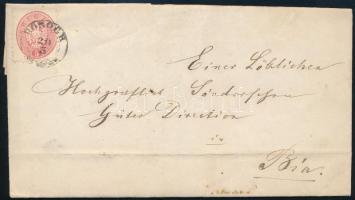 DOROGH
Einer Löblichen
Hochgräfl. Sándor'schen
Güter Direction
in
Bia.